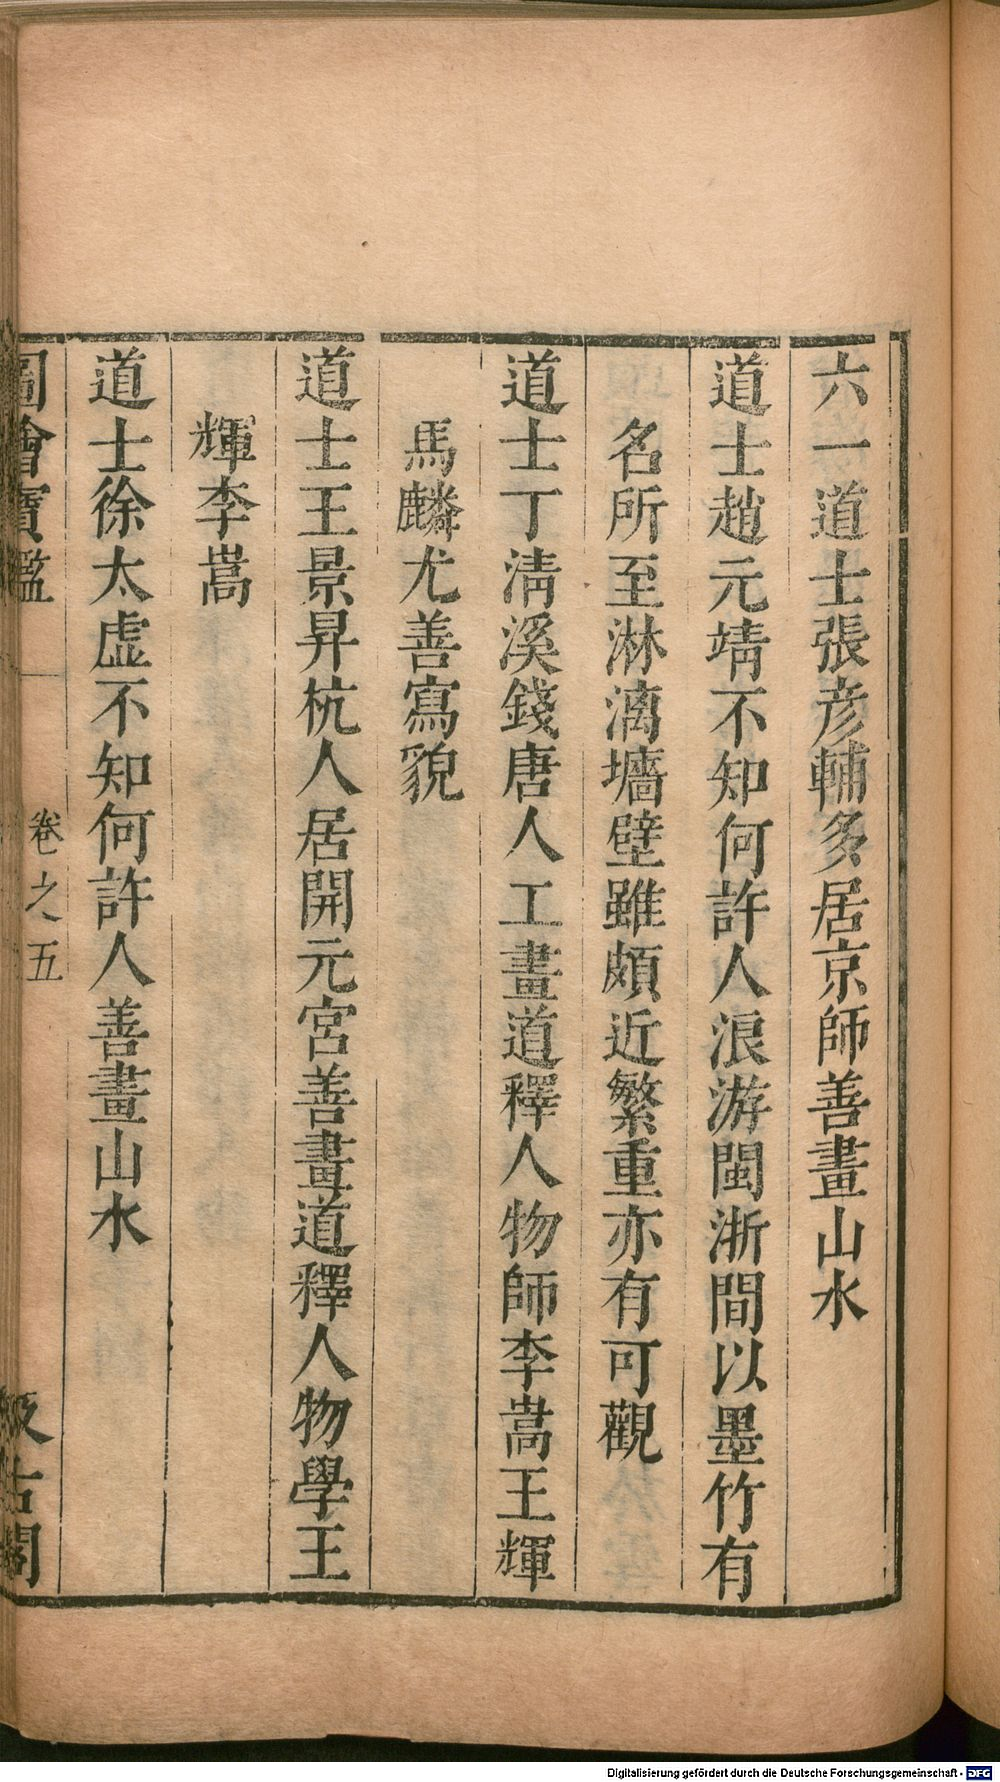 六一道士張彥輔多居京師善畫山水
道士趙元靖不知何許人浪游閩浙間以墨竹有
名所至淋漓墻壁雖頗近繁重亦有可觀
道士丁清溪錢唐人工畫道釋人物師李嵩王輝
馬麟尤善寫貌
道士王景昇杭人居開元宮善畫道釋人物學王
輝李嵩
道士徐太虛不知何許人善畫山水
圖繪寶鑑 卷之五 汲古閣
Digitalisierung gefördert durch die Deutsche Forschungsgemeinschaft - DFG